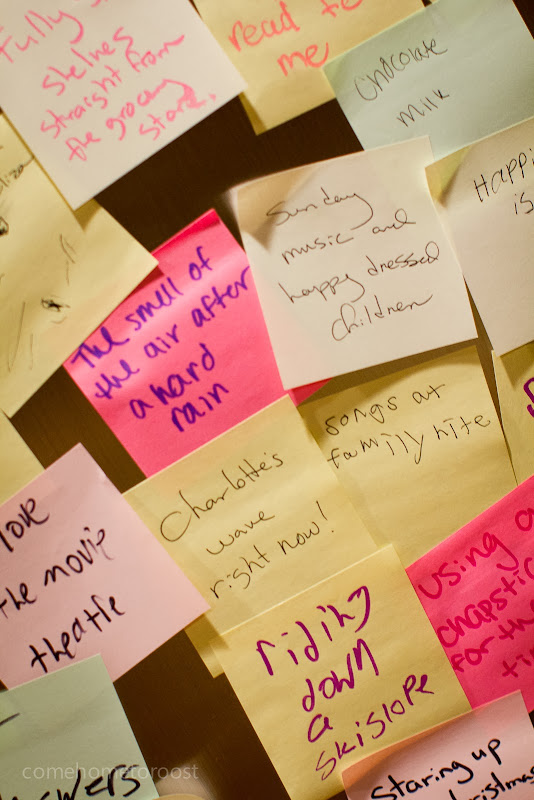 Fully
shelves
straight from
the grocery
store.
read to
me
Chocolate
milk
Sunday
music and
happy dressed
children
Happi
is
The smell of
the air after
a hard
rain
songs at
family nite
Charlotte's
wave
right now!
love
the movie
theatre
using a
chapstic
for the
ti
riding
down
a
ski slope
staring up
christmas
comehometoroost